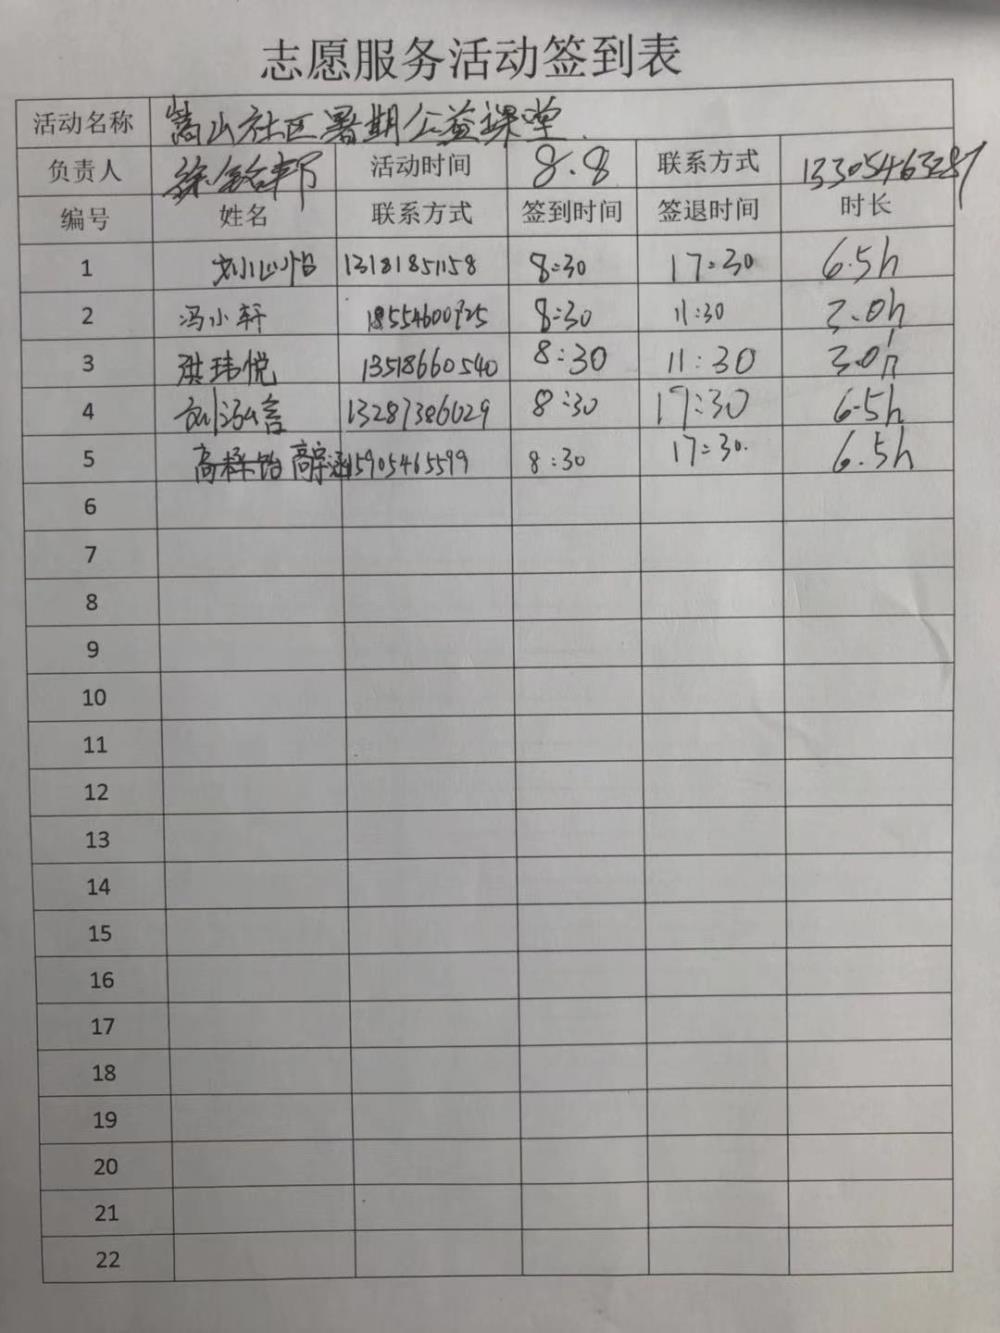 志愿服务活动签到表
活动名称 嵩山社区暑期公益课堂
负责人 活动时间 8.8 联系方式 13305463287
编号 姓名 联系方式 签到时间 签退时间 时长
1 13181851158 8:30 17:30 6.5h
2 冯小轩 18554600925 8:30 11:30 3.0h
3 琪玮悦 13518660540 8:30 11:30 3.0h
4 刘泓言 13287386029 8:30 17:30 6.5h
5 高梓怡 高宇涵 15905465599 8:30 17:30. 6.5h
6
7
8
9
10
11
12
13
14
15
16
17
18
19
20
21
22